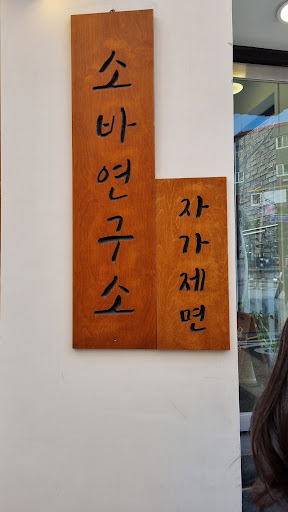 소바연구소
자가제면